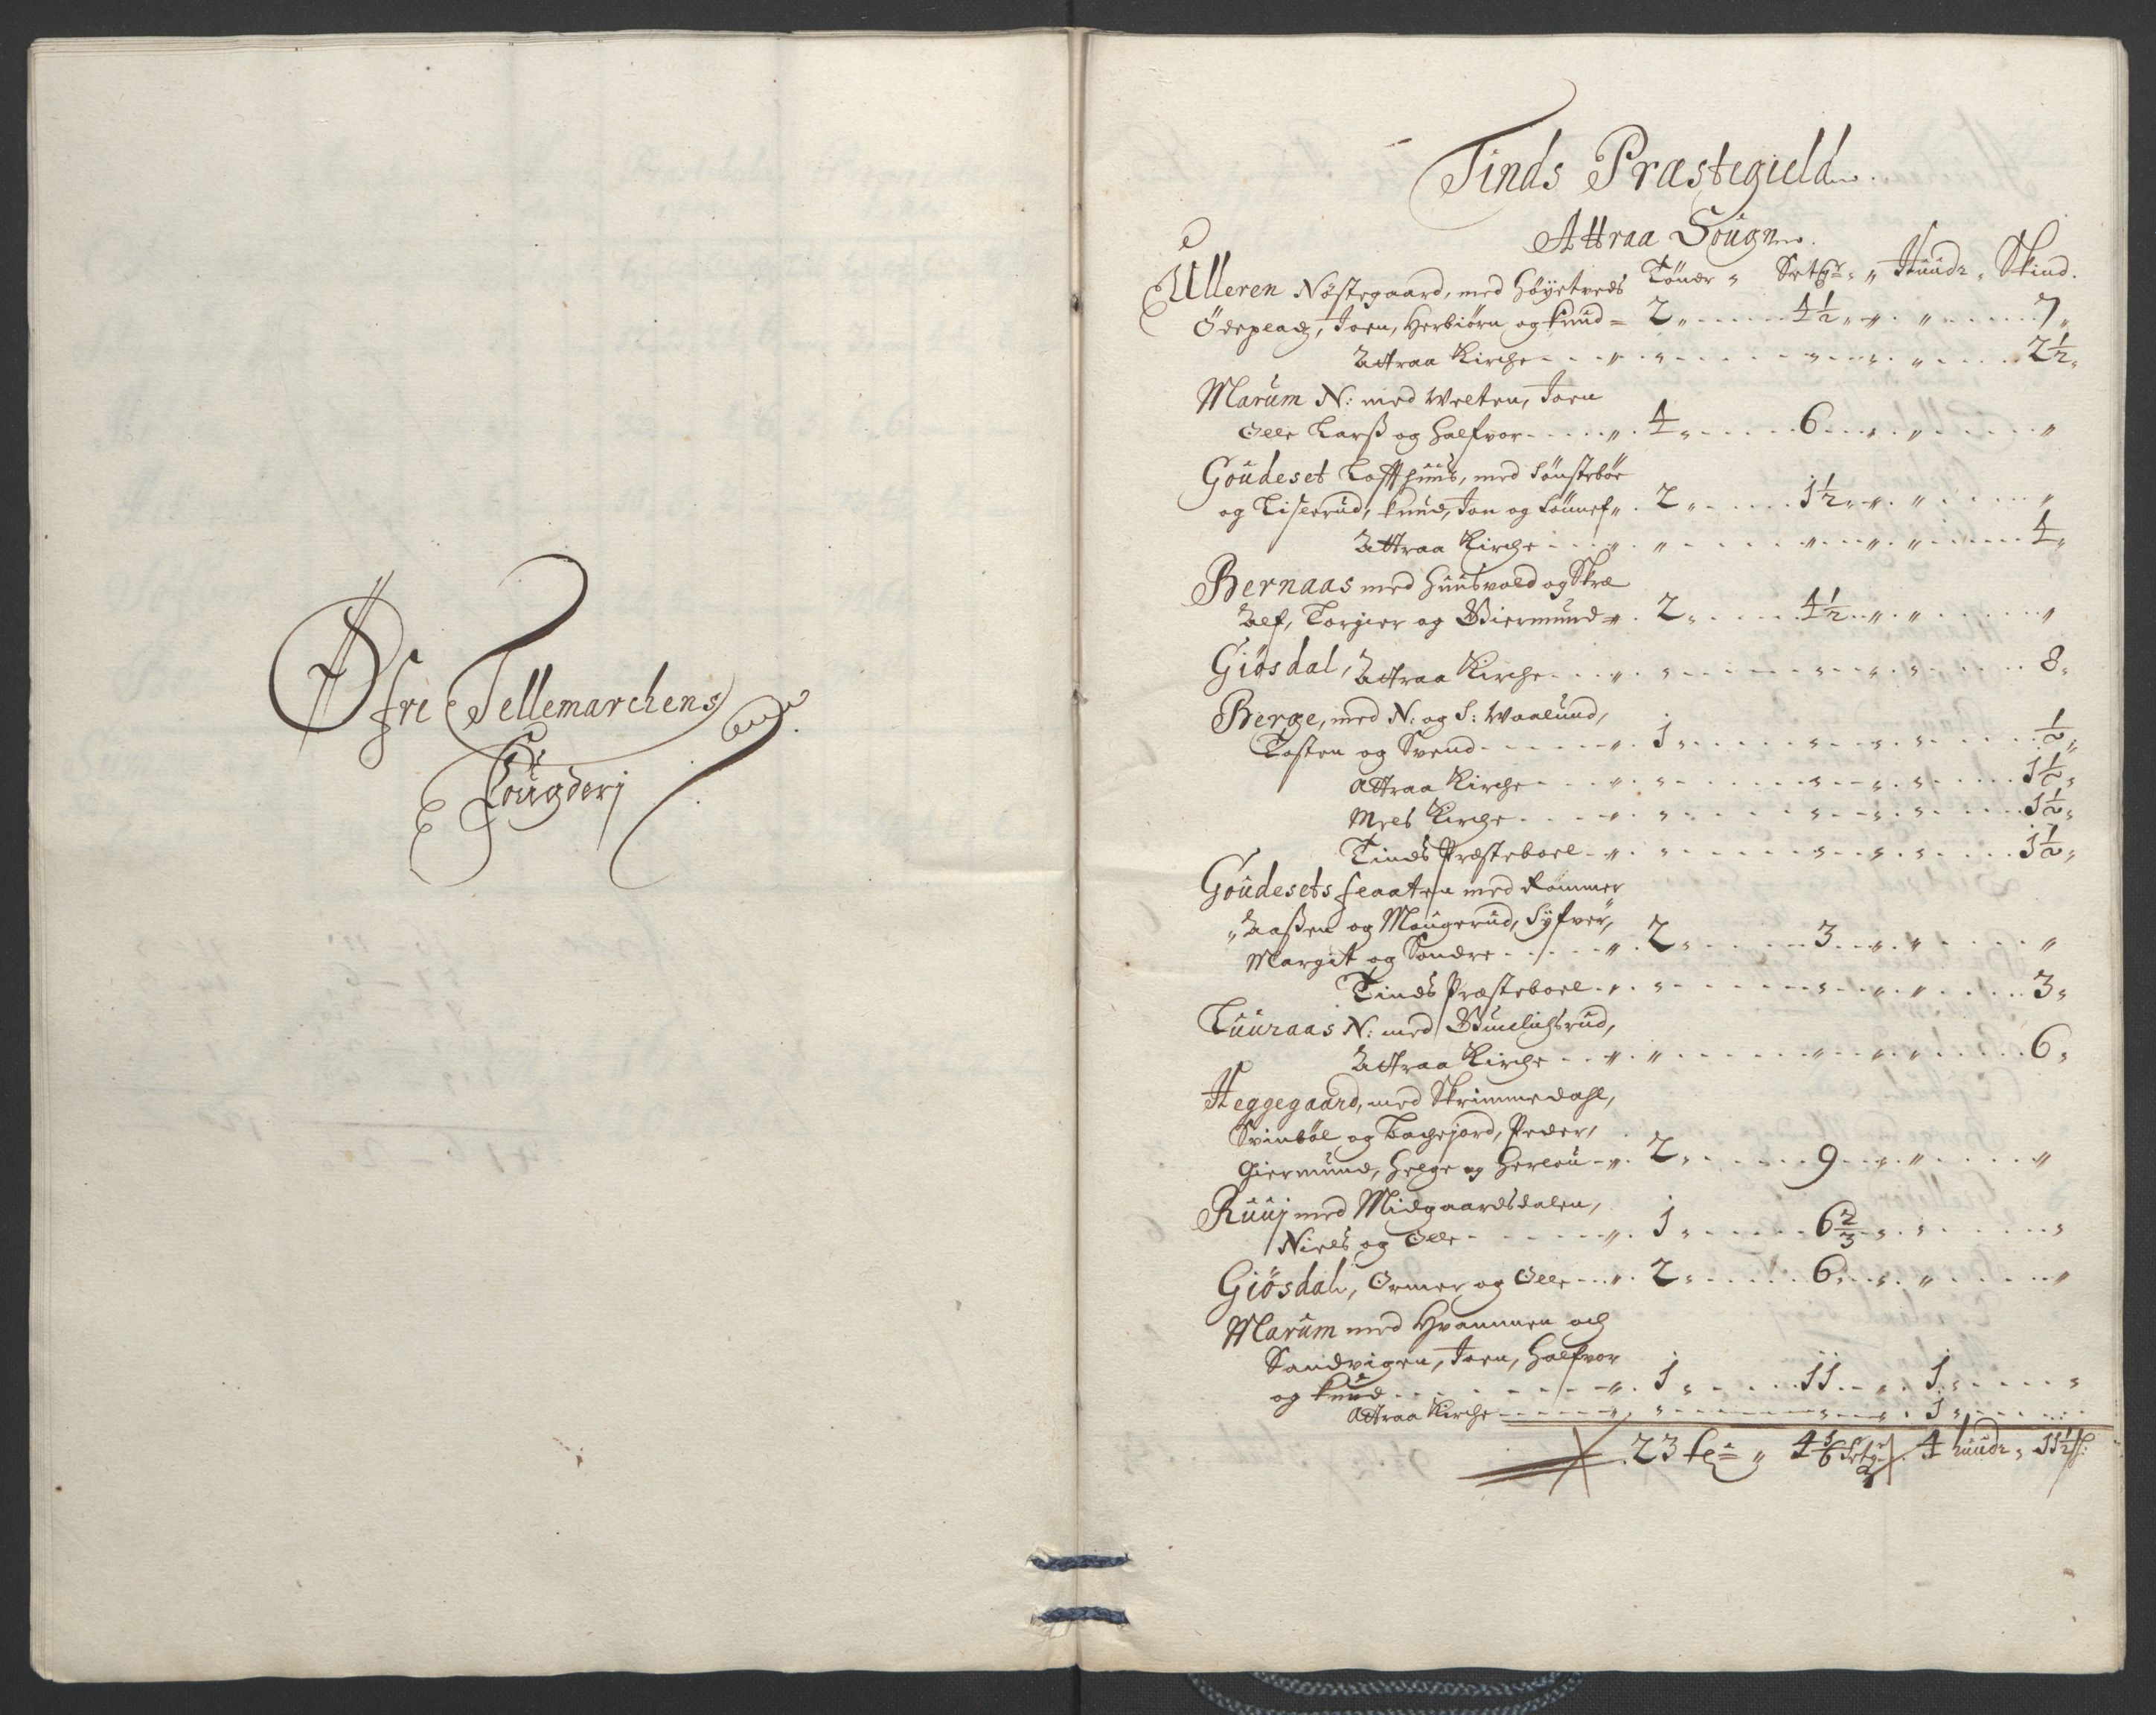 Øfre Tellemarchens
Fougderj
Tinds Præstegield.
Attraa Sougn.
Tönder " Setgr: " Huudr " Skind.
Ulleren Nöstegaard, med Höÿetveds
Ödepladz, Joen, Herbiörn og knud = 2 " 4½ " " " 7 "
Attraa Kirche " " " " " 2½ "
Marum N: med Welten, Joen
Olle Larß og Halfvor " 4 " 6 " " "
Goudeset Loffthuus, med Sönsteböe
og Liserud, knud, Jon og Sönnef " 2 " 1½ " " " "
Attraa Kirche " " " " " 4 "
Bernaas med Huusvold og Skræ
Alf, Torgier og Biermund " 2 " 4½ " " "
Giösdal, Attraa Kirche " " " " " 8 "
Berge, med N: og S: Waalund,
Tosten og Svend " 1 " " " " ½ "
Attraa Kirche " " " " " 1½ "
Mels Kirche " " " " " 1½ "
Tinds Præsteboel " " " " " 1½ "
Goudesets slaaten med Rommer
"Aaßen og Mougerud, Syfver,
Margit og Sondre " 2 " 3 " " "
Tinds Præsteboel " " " " " 3 "
Luuraas N: med
Attraa Kirche " " " " " 6 "
Heggegaard, med Skrimmedahl,
Svinböl og Bachejord, Peder,
Giermund, Helge og Herlou " 2 " 9 " " "
Ruuj med Midgaardsdalen,
Niels og Olle " 1 " 6⅔ " " "
Giösdal, Ormer og Olle " 2 " 6 " " "
Marum med Hvammen och
Sandvigen, Joen, Halfvor
og knud " 1 " 11 " 1 " "
Attraa Kirche " " " " 1 "
23 te " 4⅙ Setgr 4 huudr " 11½ sk: